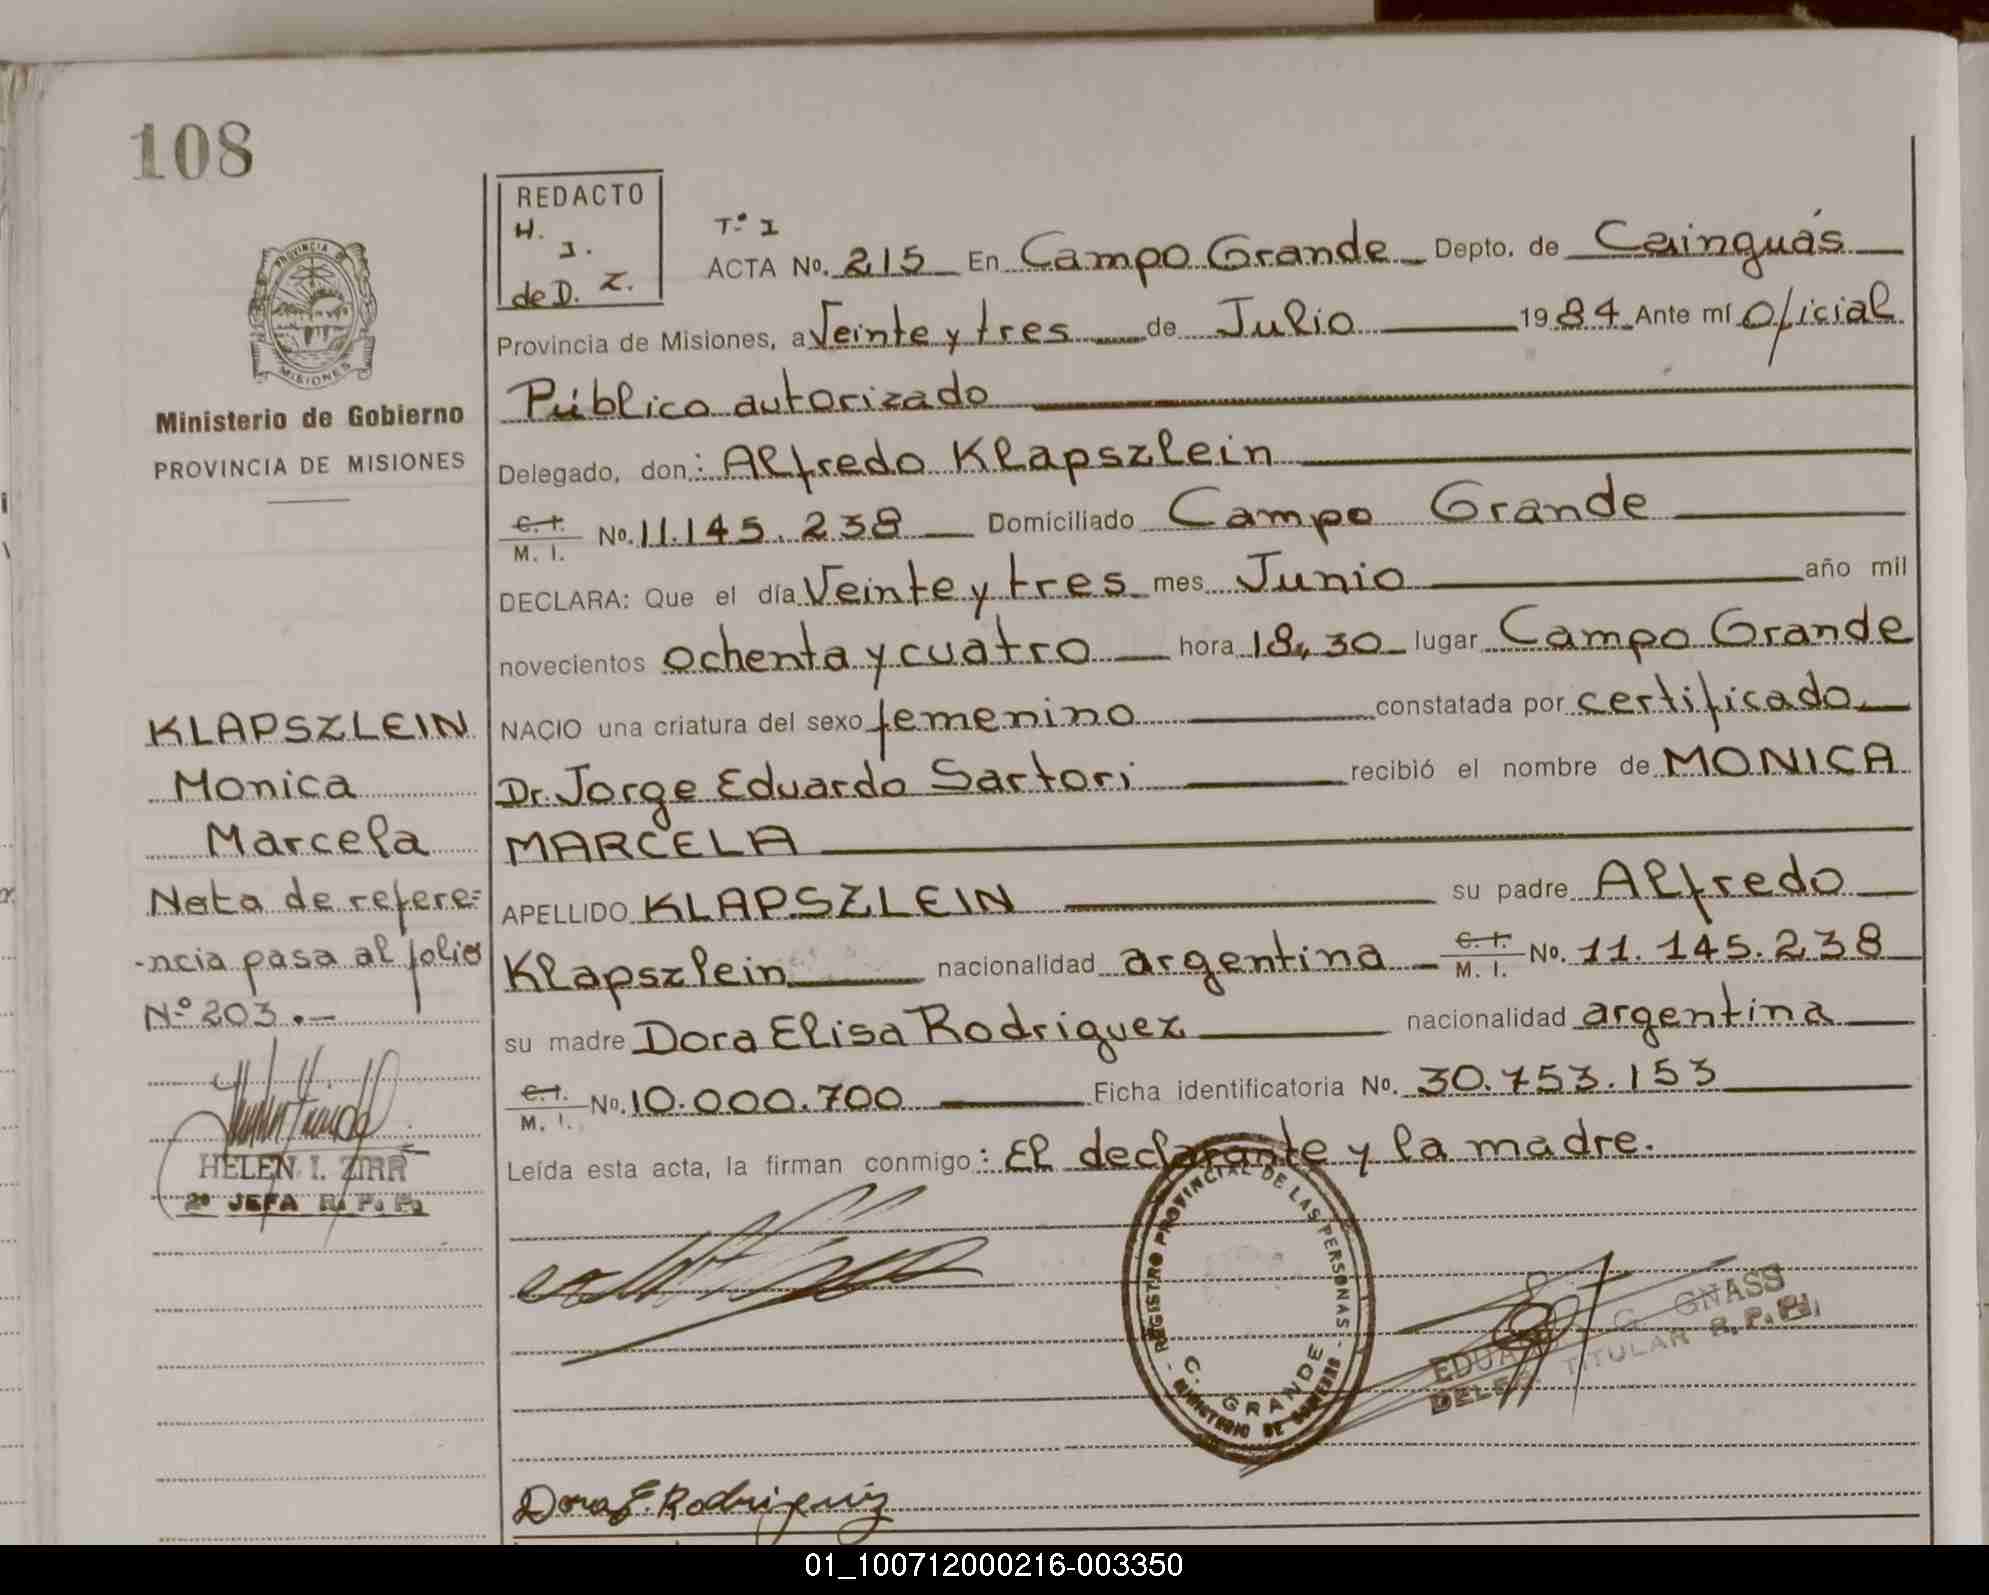 108
REDACTO
H.
I.
de D. Z.
T.º I
ACTA No. 215 En Campo Grande Depto. de Cainguás
Provincia de Misiones, a Veinte y tres de Julio 1984 Ante mí Oficial
Público autorizado
Delegado, don: Alfredo Klapszlein
C. I. M. I. No. 11.145.238 Domiciliado Campo Grande
DECLARA: Que el día Veinte y tres mes Junio año mil
novecientos ochenta y cuatro hora 18,30 lugar Campo Grande
NACIO una criatura del sexo femenino constatada por certificado
Dr. Jorge Eduardo Sartori recibió el nombre de MONICA
MARCELA
APELLIDO KLAPSZLEIN su padre Alfredo
Klapszlein nacionalidad argentina C. I. M. I. No. 11.145.238
su madre Dora Elisa Rodriguez nacionalidad argentina
C. I. M. I. No. 10.000.700 Ficha identificatoria No. 30.753.153
Leída esta acta, la firman conmigo: El declarante y la madre.
PROVINCIA
MISIONES
Ministerio de Gobierno
PROVINCIA DE MISIONES
KLAPSZLEIN
Monica
Marcela
Nota de refere=
-ncia pasa al folio
N.º 203.-
HELEN I. ZIRR
2º JEFA R. P. P.
REGISTRO PROVINCIAL DE LAS PERSONAS
C. GRANDE
MINISTERIO DE GOBIERNO
G. GNASS
TITULAR R. P. P.
Dora E. Rodriguez
01_100712000216-003350